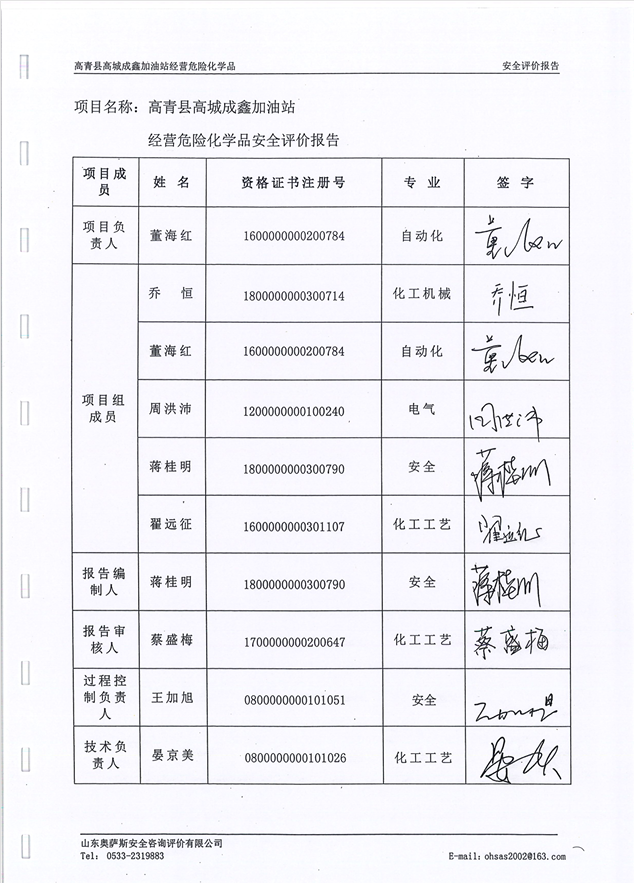 高青县高城成鑫加油站经营危险化学品 安全评价报告
项目名称：高青县高城成鑫加油站
经营危险化学品安全评价报告
项目成员 姓 名 资格证书注册号 专 业 签 字
项目负责人 董海红 1600000000200784 自动化
项目组成员
乔 恒 1800000000300714 化工机械 乔恒
董海红 1600000000200784 自动化
周洪沛 1200000000100240 电气 周洪沛
蒋桂明 1800000000300790 安全 蒋桂明
翟远征 1600000000301107 化工工艺 翟远征
报告编制人 蒋桂明 1800000000300790 安全 蒋桂明
报告审核人 蔡盛梅 1700000000200647 化工工艺 蔡盛梅
过程控制负责人 王加旭 0800000000101051 安全
技术负责人 晏京美 0800000000101026 化工工艺
山东奥萨斯安全咨询评价有限公司
Tel: 0533-2319883 E-mail:ohsas2002@163.com